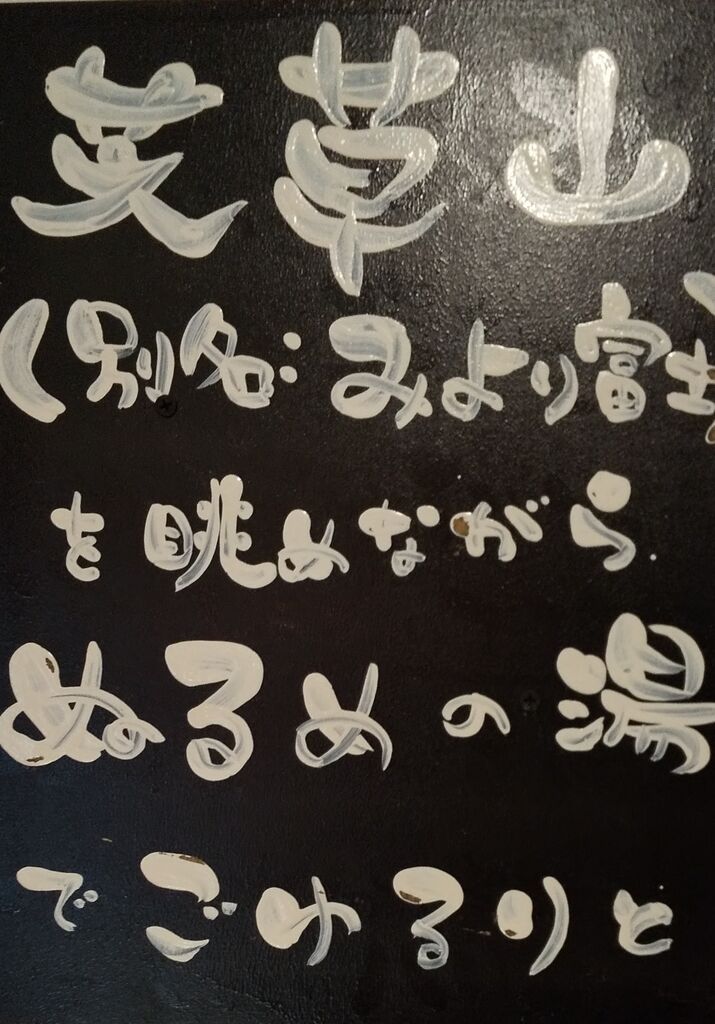 芝草山
(別名:みより富士)
を眺めながら
ぬるめの湯
でごゆるりと